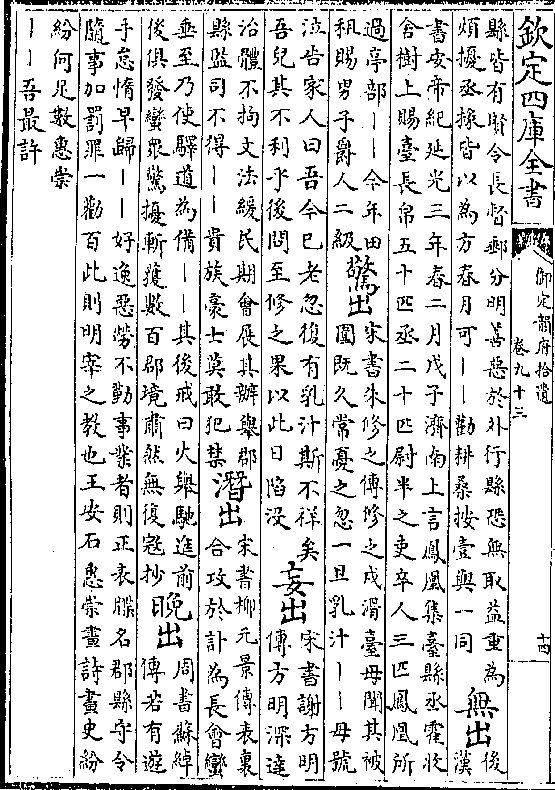 欽定四庫全書
御定韻府拾遺
卷九十三
十四
縣皆有賢令長督郵分明善惡於外行縣恐無取益重為
煩擾丞掾皆以為方春月可丨丨勸耕桑按壹與一同
無出
後漢
書安帝紀延光三年春二月戊子濟南上言鳳凰集臺縣丞霍收
舍樹上賜臺長帛五十匹丞二十匹尉半之吏卒人三匹鳳凰所
過亭部丨丨今年田
租賜男子爵人二級
驚出
宋書朱修之傳修之戍滑臺母聞其被
圍既久常憂之忽一旦乳汁丨丨母號
泣告家人曰吾今已老忽復有乳汁斯不祥矣
吾兒其不利乎後問至修之果以此日陷沒
妄出
宋書謝方明
傳方明深達
治體不拘文法緩民期會展其辦舉郡
縣監司不得丨丨貴族豪士莫敢犯禁
潛出
宋書柳元景傳表裏
合攻於計為長會蠻
垂至乃使驛道為備丨丨其後戒曰火舉馳進前
後俱發蠻衆驚擾斬獲數百郡境肅然無復宼抄
晚出
周書蘇綽
傳若有遊
手怠惰早歸丨丨好逸惡勞不勤事業者則正長牒名郡縣守令
隨事加罰罪一勸百此則明宰之教也王安石惠崇畫詩畫史紛
紛何足數惠崇
丨丨吾最許